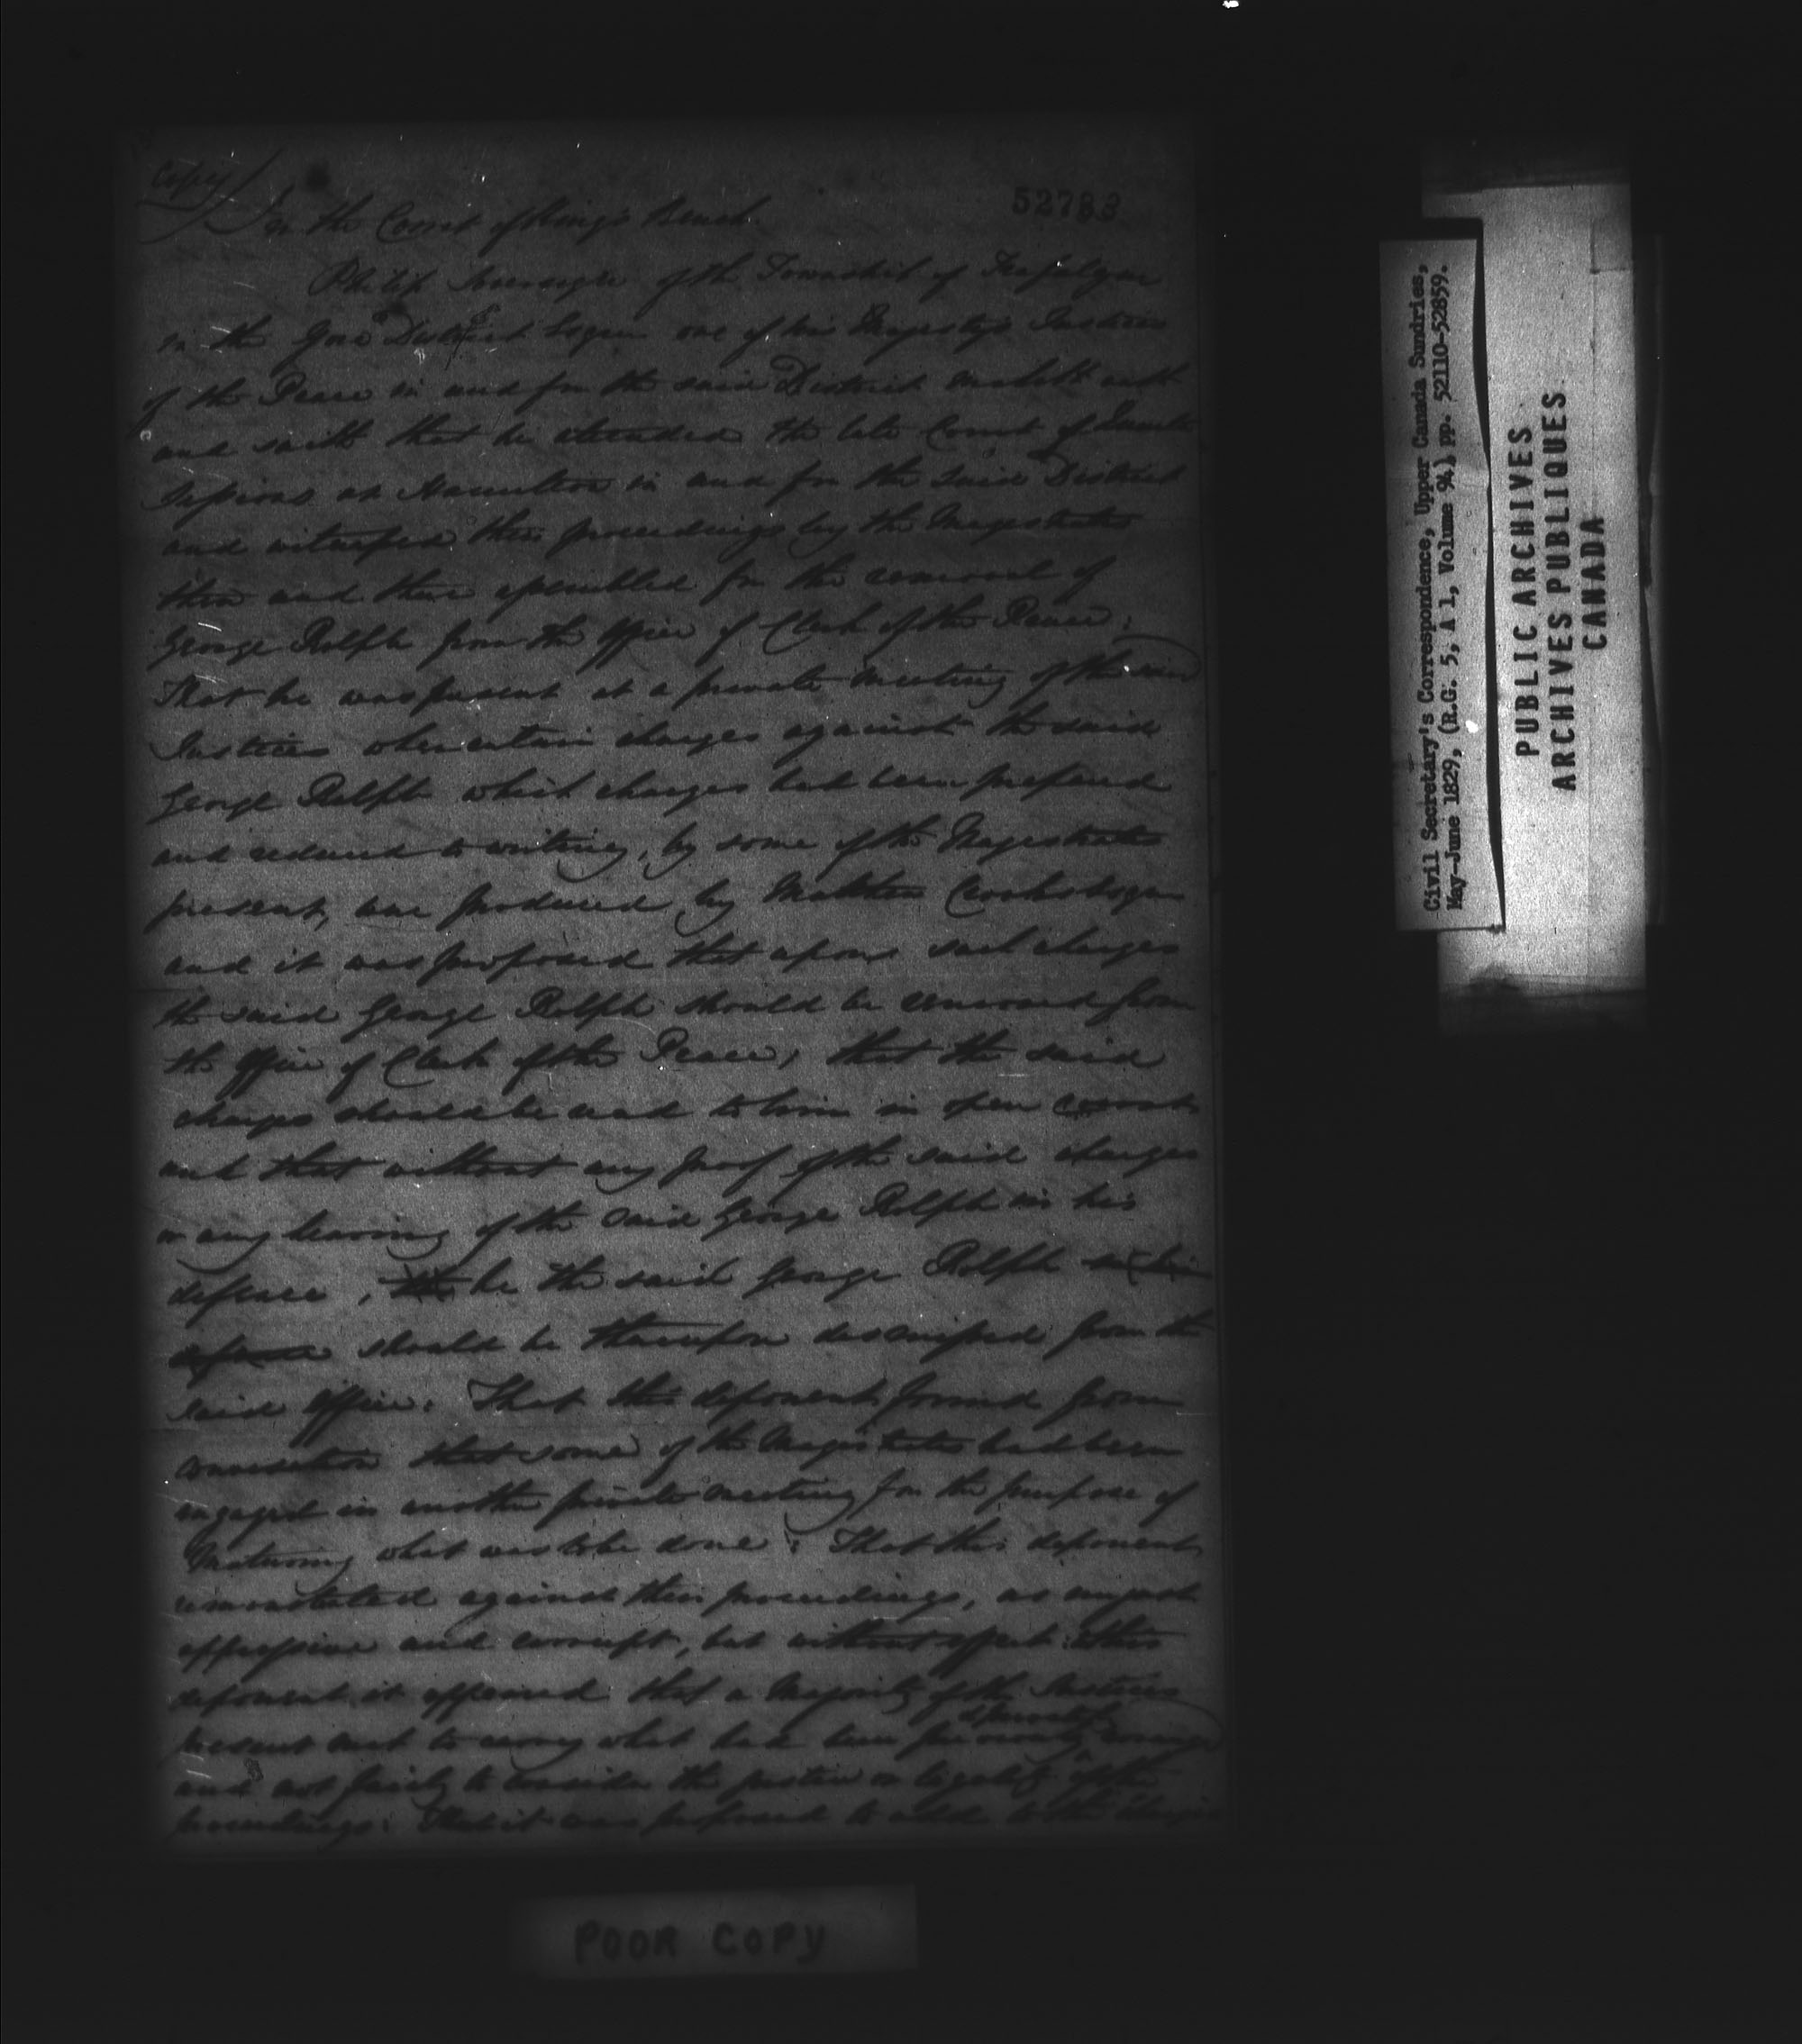 Copy
52783
In the Court of King's Bench.
Philip Sovereign of the Township of Trafalgar
in the Gore District Esquire one of his Majesty's Justices
of the Peace in and for the said District maketh oath
and saith that he attended the late Court of Quarter
Sessions at Hamilton in and for the said District
and witnessed the proceedings by the Magistrates
then and there assembled for the removal of
George Rolph from the Office of Clerk of the Peace;
That he was present at a private meeting of the said
Justices when certain charges against the said
George Rolph which charges had been prepared
and reduced to writing, by some of the Magistrates
present, were produced by Matthew Crooks Esquire
and it was proposed that upon such charges
the said George Rolph should be removed from
the Office of Clerk of the Peace, that the said
charges should be read to him in open court
and that without any proof of the said charges
or any hearing of the said George Rolph in his
defence, he the said George Rolph in his
defence should be thereupon dismissed from the
said Office: That this deponent found from
conversation that some of the Magistrates had been
engaged in another private meeting for the purpose of
maturing what was to be done: That this deponent
remonstrated against their proceedings, as unjust
oppressive and corrupt, but without effect: to this
deponent it appeared that a Majority of the Justices
present met to carry what had been previously arranged
and not fairly to consider the justice or legality of the
proceedings: That it was proposed to add to the charges
POOR COPY
Civil Secretary's Correspondence, Upper Canada Sundries,
May-June 1829, (R.G. 5, A 1, Volume 94) pp. 52110-52859.
PUBLIC ARCHIVES
ARCHIVES PUBLIQUES
CANADA